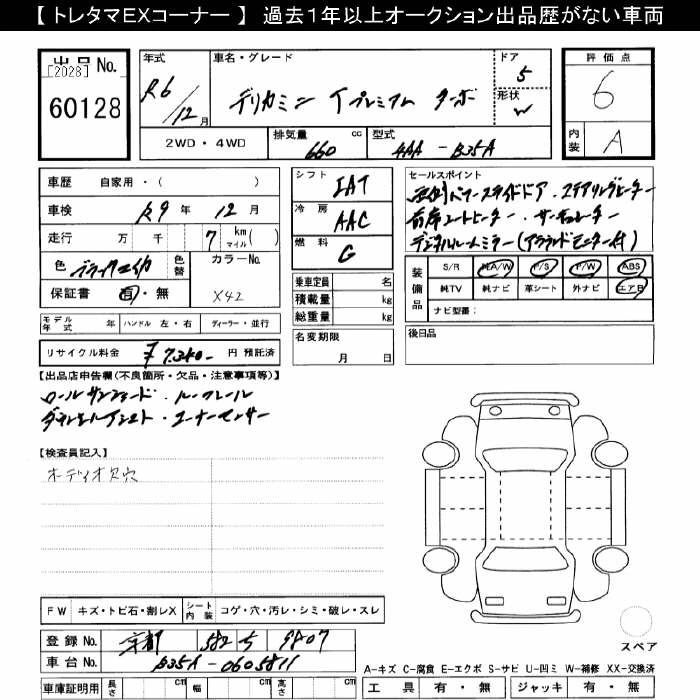 【 トレタマEXコーナー 】 過去1年以上オークション出品歴がない車両
出品 No.
[2028]
60128
年式
R6/12月
車名・グレード
デリカミニ Tプレミアム ターボ
ドア
5
形状
W
評価点
6
内装
A
2WD・4WD
排気量 660 cc
型式 4AA - B35A
車歴 自家用・( )
車検 R9年 12月
走行 万 千 7 km マイル ( )
色 ブラックマイカ
色替
カラーNo.
X42
保証書 有・無
シフト IAT
冷房 AAC
燃料 G
乗車定員 名
積載量 kg
総重量 kg
セールスポイント
両側パワースライドドア・ステアリングヒーター
前席シートヒーター・サーキュレーター
デジタルルームミラー(アラウンドモニター付)
装備品
S/R A/W P/S P/W ABS
純TV 純ナビ 革シート 外ナビ エアB
ナビ型番:
モデル年式 年 ハンドル 左・右 ディーラー・並行
名変期限
月 日
後日品
リサイクル料金 ¥7,340- 円 預託済
【出品店申告欄(不良箇所・欠品・注意事項等)】
ロールサンシェード・ルーフレール
ダウンヒルアシスト・コーナーセンサー
【検査員記入】
オーディオ欠穴
FW キズ・トビ石・割レX
シート内装 コゲ・穴・汚レ・シミ・破レ・スレ
登録 No. 京都 582 ち 9807
車台 No. B35A-0605811
車庫証明用 長さ cm 幅 cm 高さ cm
スペア
A-キズ C-腐食 E-エクボ S-サビ U-凹ミ W-補修 XX-交換済
工具 有・無 ジャッキ 有・無